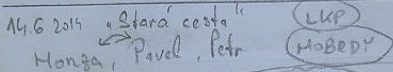 14.6 2014 „Stará cesta" LKP
Honza, Pavel, Petr MOBEDY